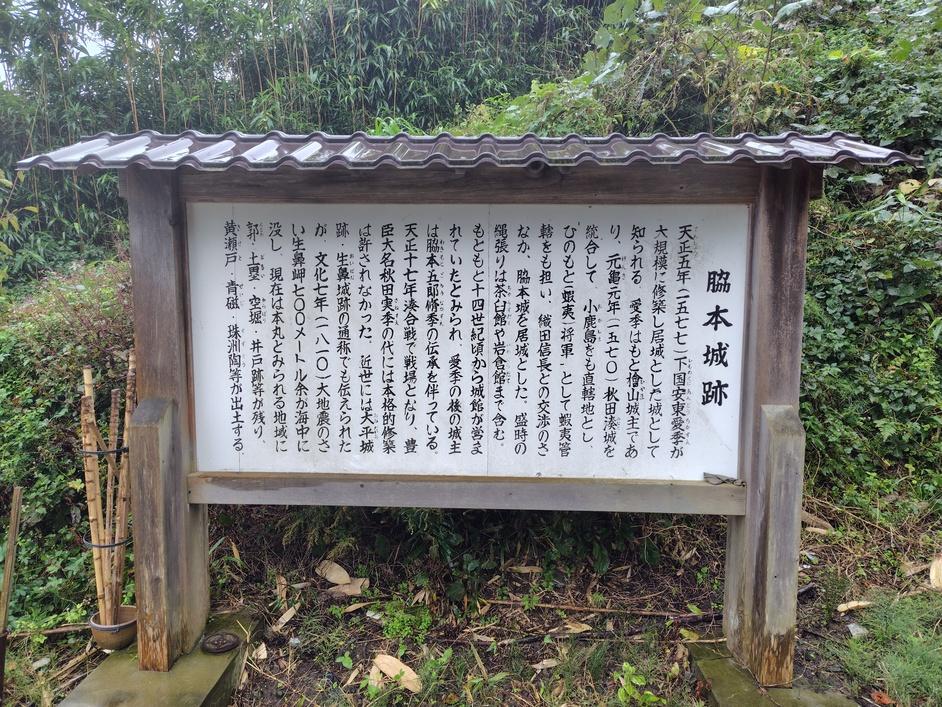 脇本城跡
天正五年（一五七七）下国安東愛季が
大規模に修築し居城とした城として
知られる。愛季はもと檜山城主であ
り、元亀元年（一五七〇）秋田湊城を
統合して、小鹿島をも直轄地とし、
ひのもと蝦夷「将軍」として蝦夷管
轄をも担い、織田信長との交渉のさ
なか、脇本城を居城とした。盛時の
縄張りは茶臼館や岩倉館まで含む。
もともと十四世紀頃から城館が営ま
れていたとみられ、愛季の後の城主
は脇本五郎脩季の伝承を伴っている。
天正十七年湊合戦で戦場となり、豊
臣大名秋田実季の代には本格的修築
は許されなかった。近世には太平城
跡・生鼻城跡の通称でも伝えられた
が、文化七年（一八一〇）大地震のさ
い生鼻岬七〇〇メートル余が海中に
没し、現在は本丸とみられる地域に
郭・土塁・空堀・井戸跡等が残り、
黄瀬戸・青磁・珠洲陶等が出土する。